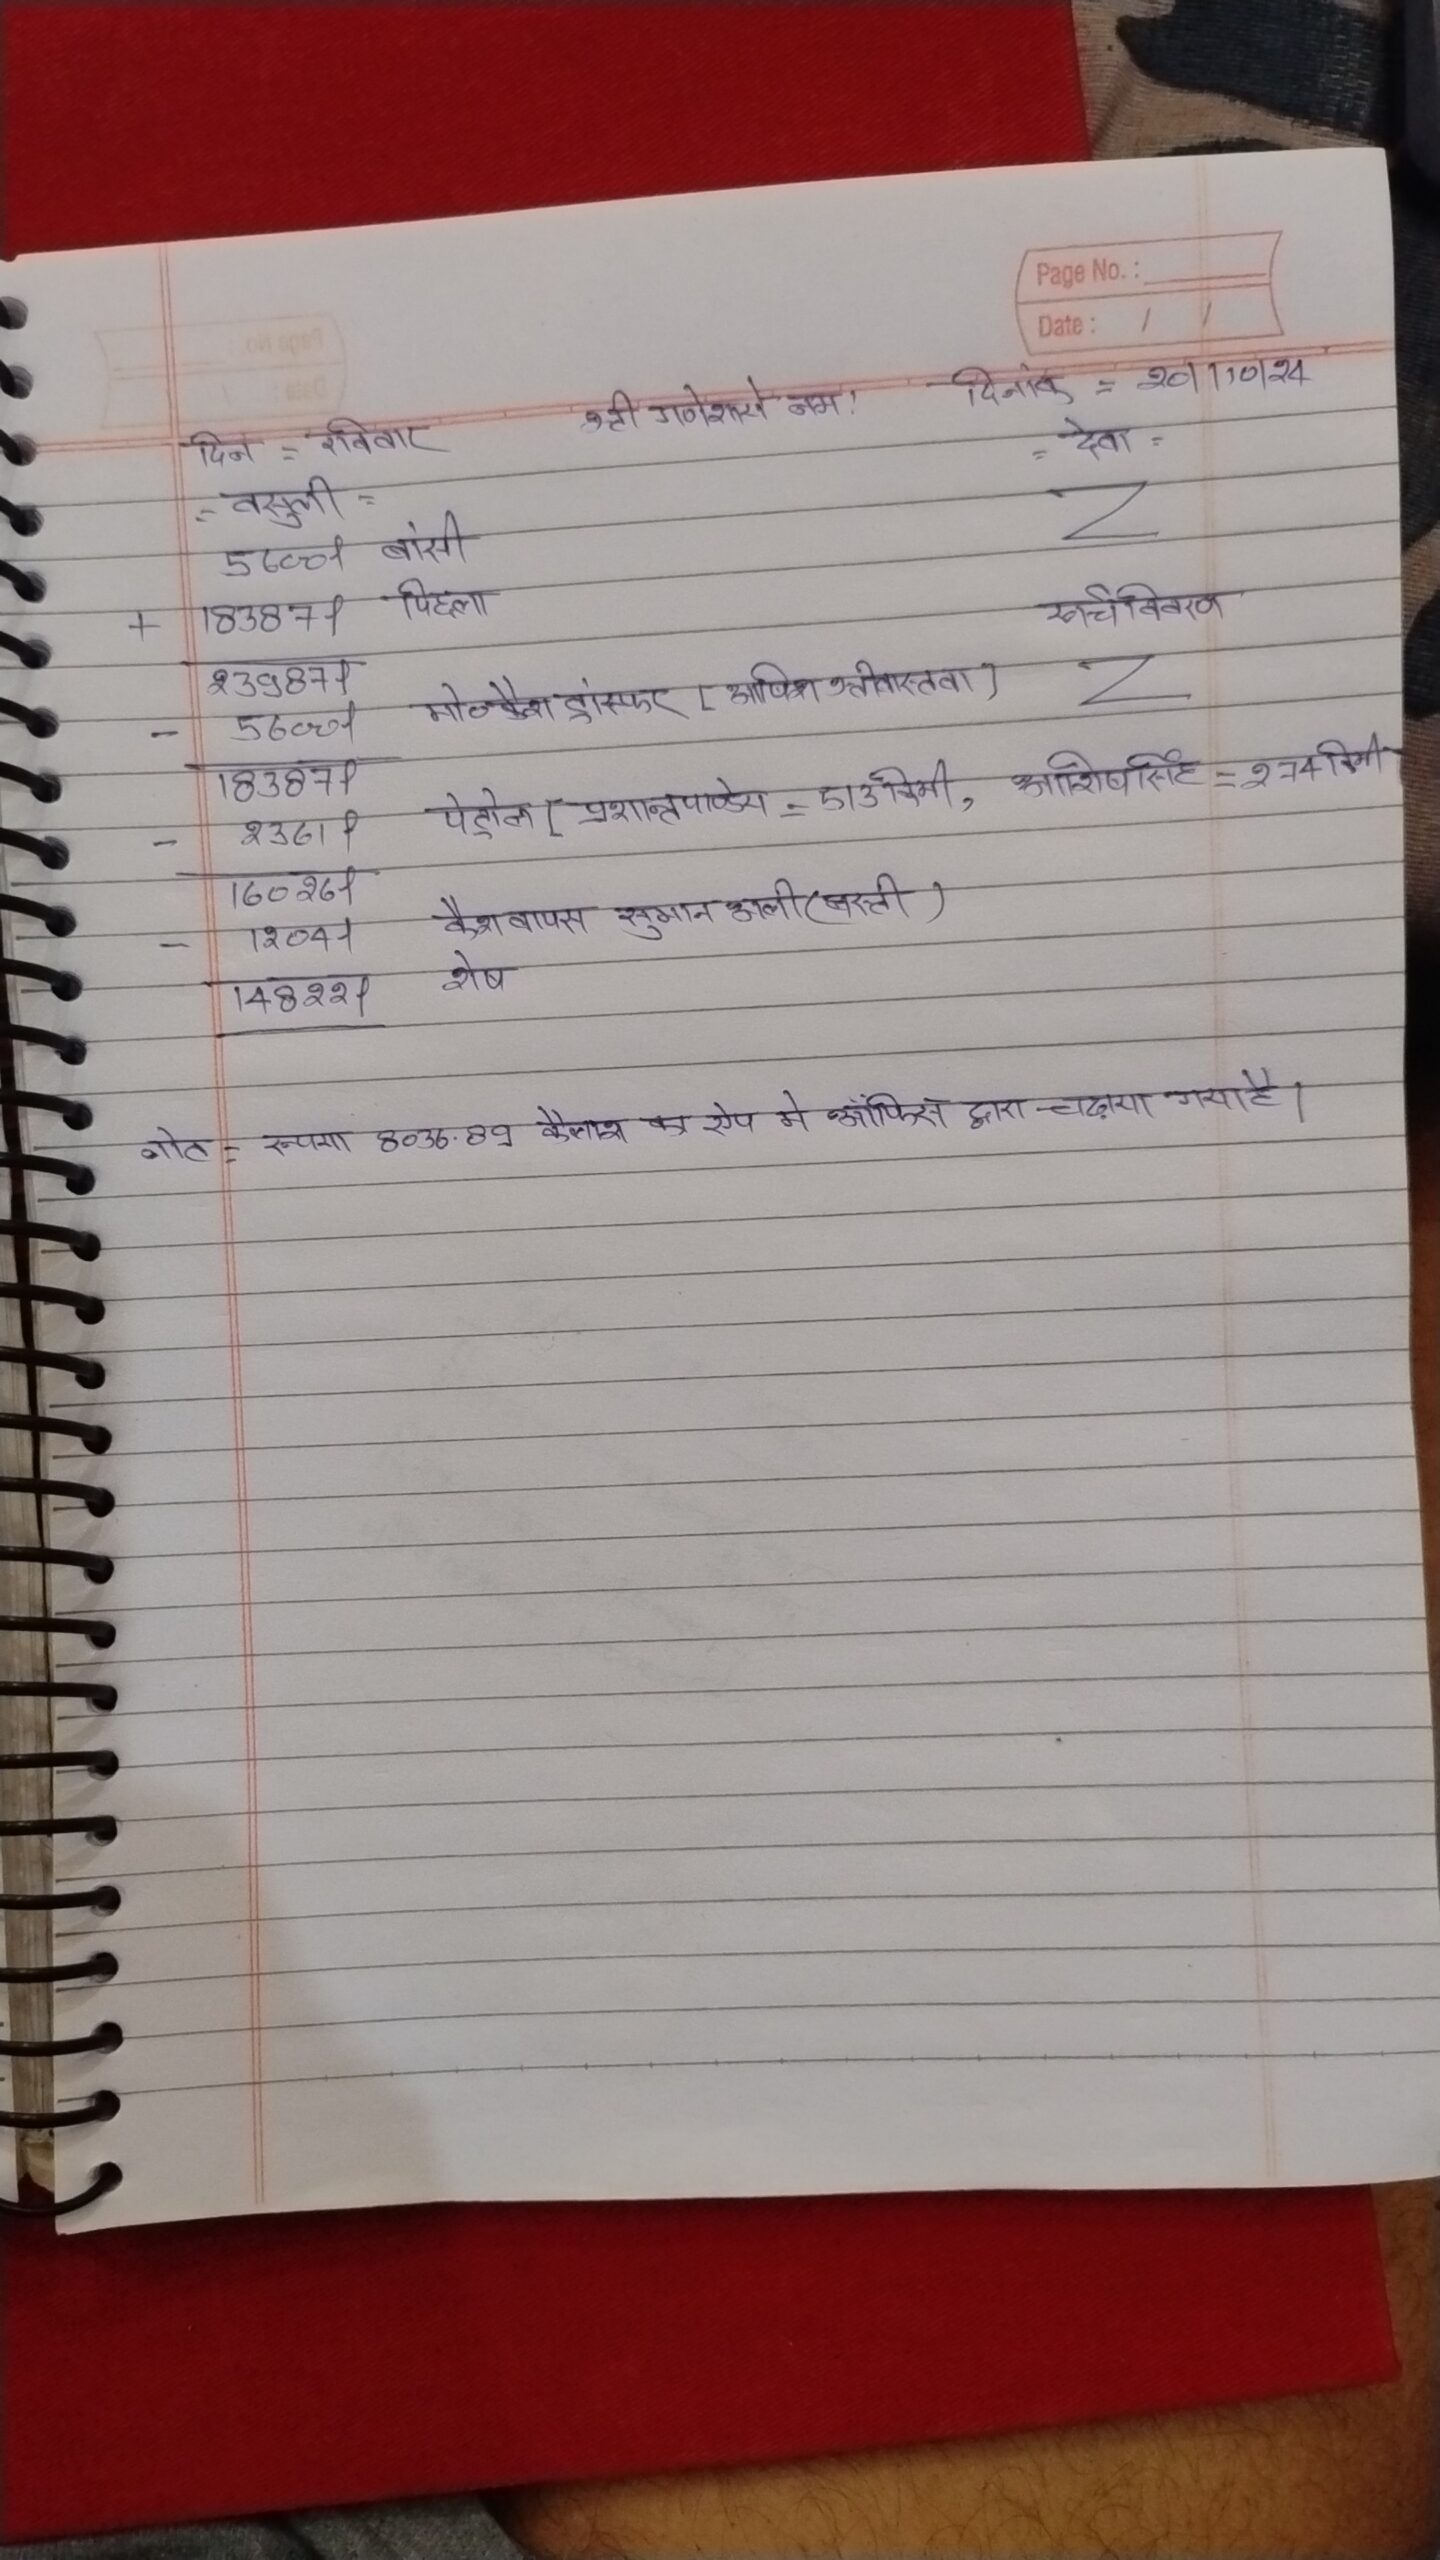 Page No. :
Date : / /
दिन = रविवार श्री गणेशाये नमः दिनांक = 20/10/24
= वसुली = = देवा =
5600/ बांसी
+ 18387/ पिछला खर्च विवरण
23987/
- 5600/ कैश ट्रांस्फर [ आफिश श्रीवास्तवा )
18387/
- 2361/ पेट्रोल [ प्रशान्त पाण्डेय = 513 किमी, आशिष सिंह = 274 किमी
16026/
- 1204/ कैश वापस सुमान अली (बस्ती )
14822/ शेष
नोट = रूपया 8036.89 कैलाश का ऐप मे ऑफिस द्वारा चढ़ाया गया है।